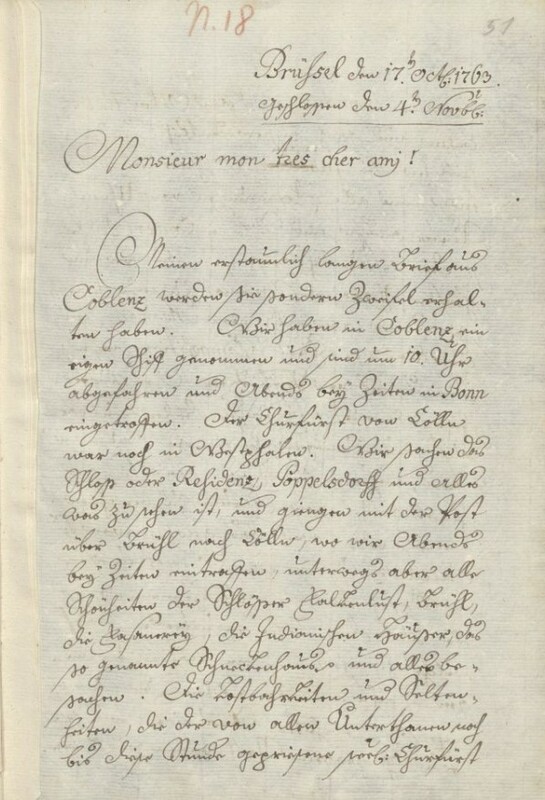 N. 18
51
Brüssel den 17t Octb: 1763.
geschlossen den 4t Novbr:
Monsieur mon tres cher amj!
Meinen erstaunlich langen Brief aus
Coblenz werden sie sondern Zweifel erhal-
ten haben. Wir haben in Coblenz ein
eigen Schiff genommen und sind um 10. Uhr
abgefahren und Abends bey Zeiten in Bonn
eingetroffen. Der Churfürst von Cölln
war noch in Westphalen. Wir sachen das
Schloss oder Residenz, Poppelsdorff und alles
was zu sehen ist, und giengen mit der Post
über Brühl nach Cölln, wo wir Abends
bey Zeiten eintraffen, unterwegs aber alle
Schönheiten der Schlösser Falkenlust, Brühl,
die Fasanerey, die Indianischen Häuser, das
so genannte Schneckenhaus und alles be-
sachen. Die Kostbahrkeiten und Selten-
heiten, die der von allen Unterthanen noch
bis diese Stunde gepriesene seel: Churfürst